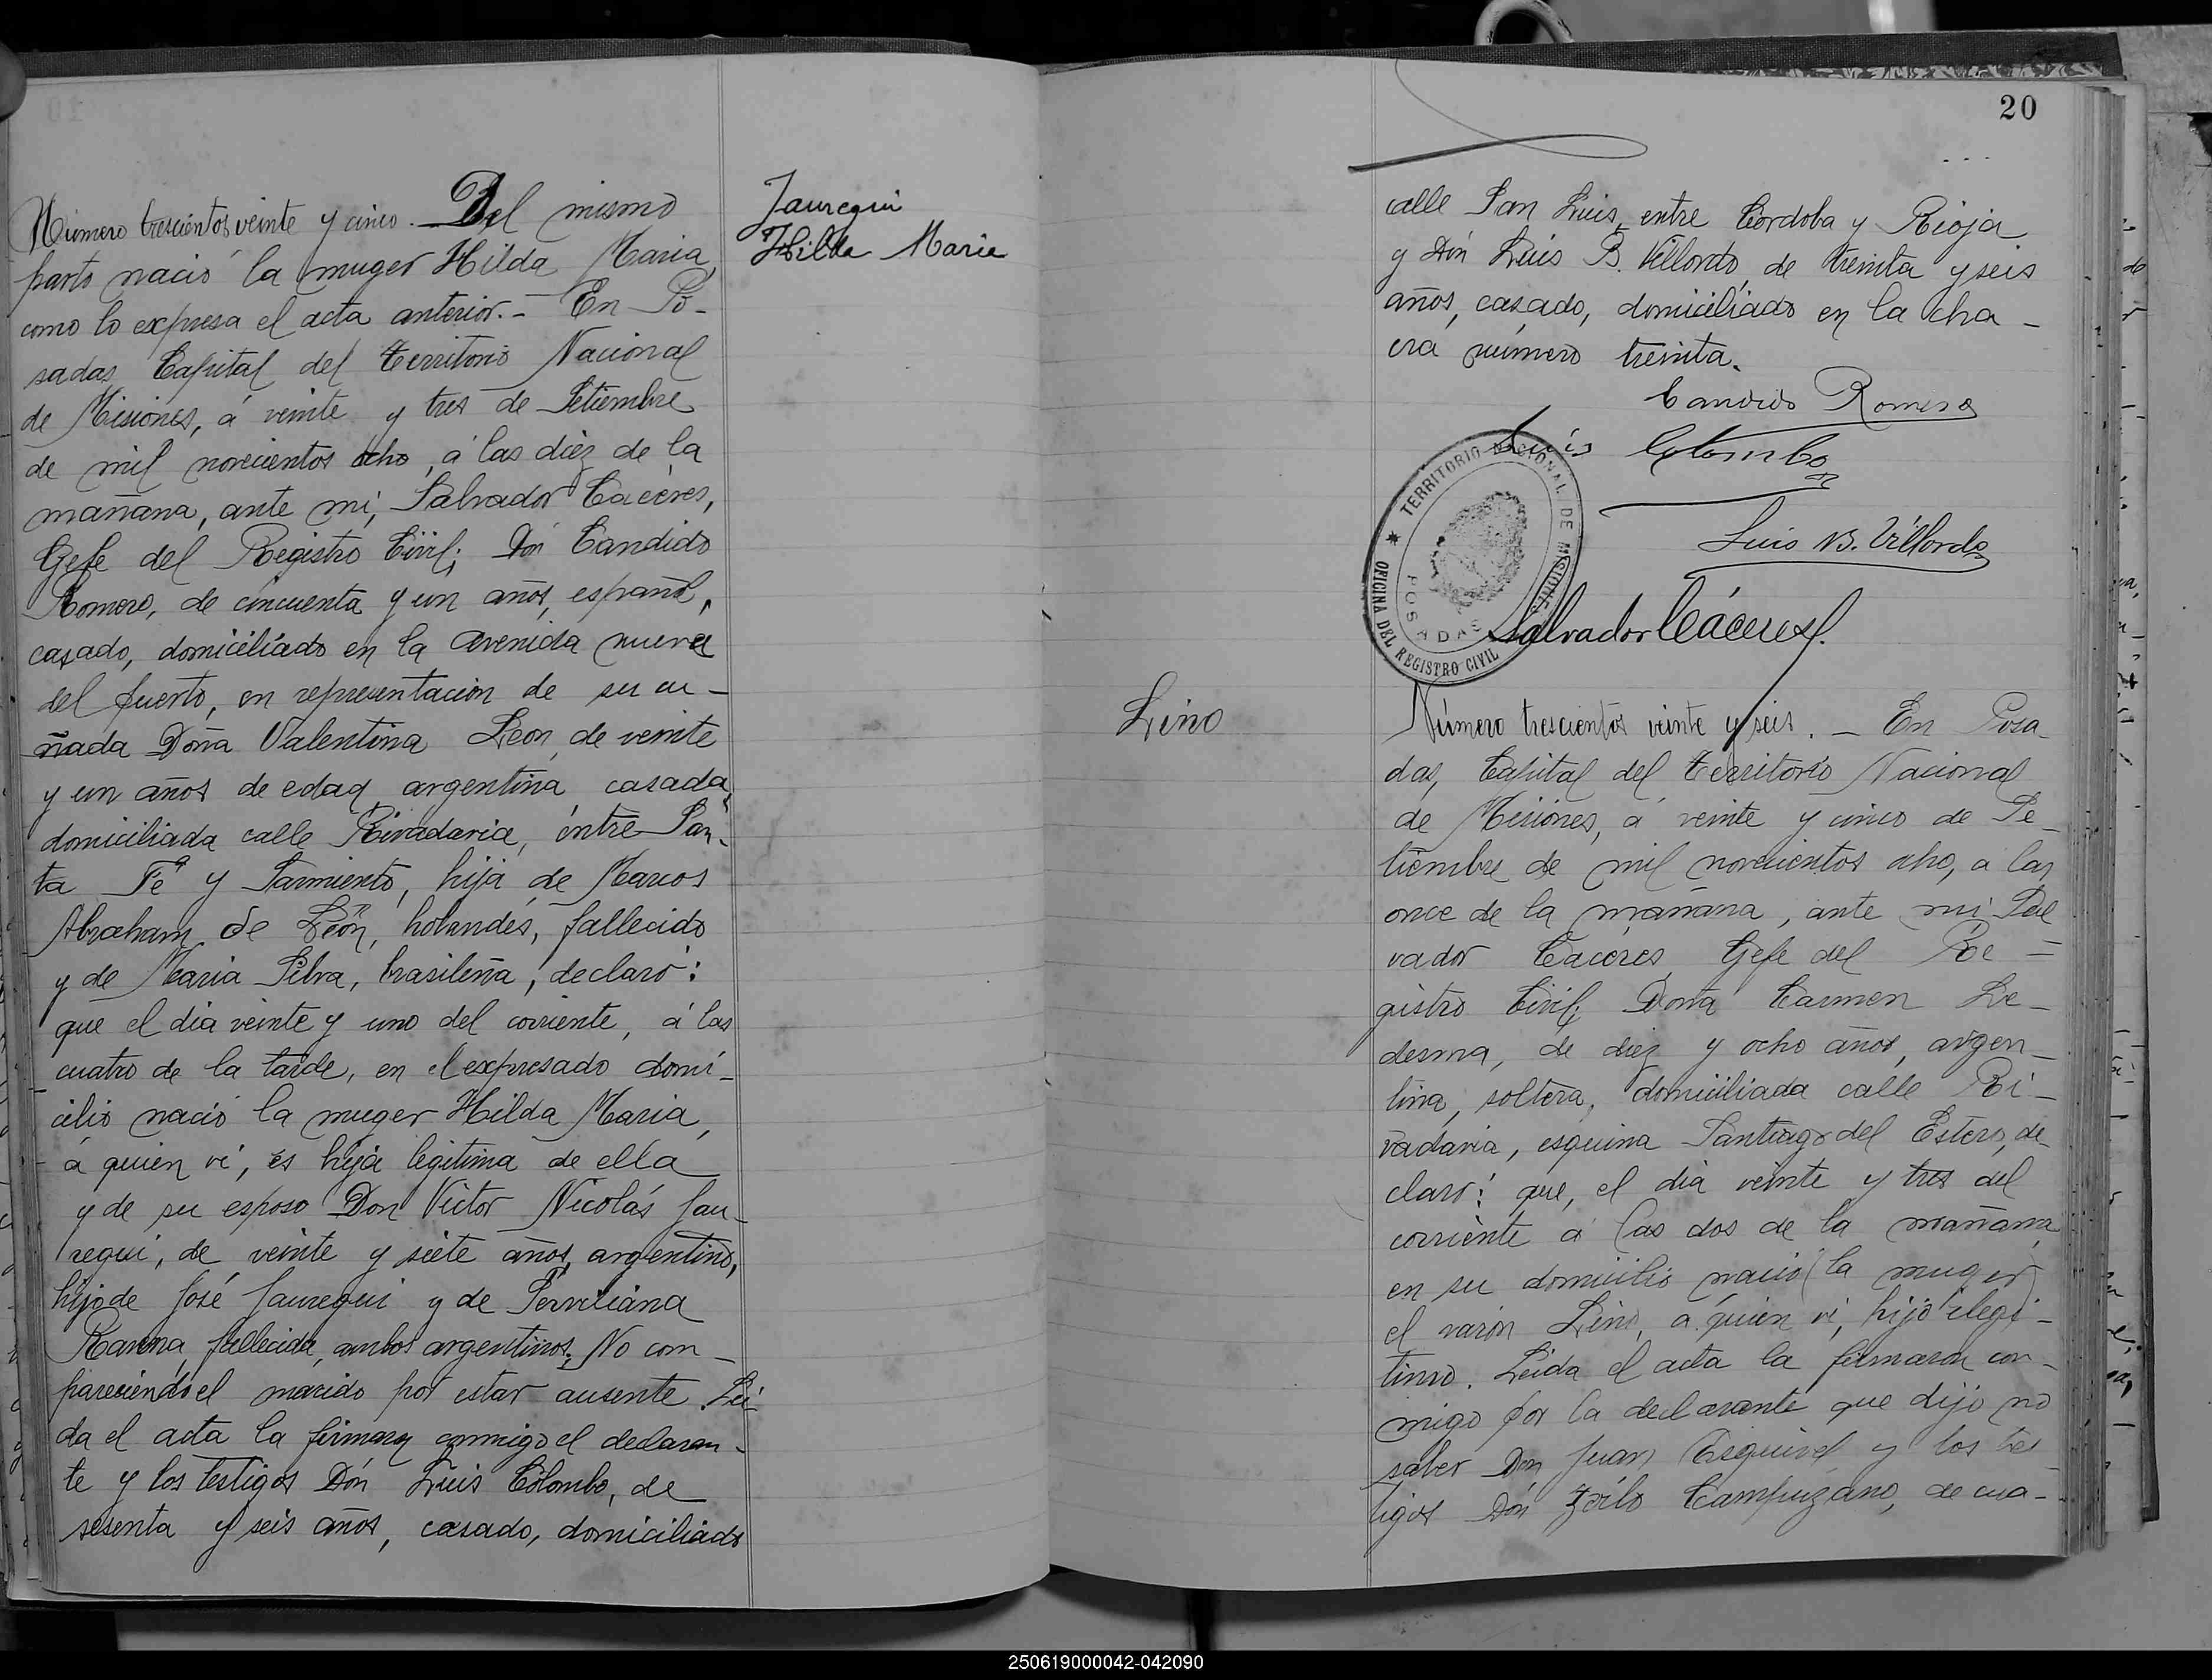 Número trescientos veinte y cinco. Del mismo
parto nació la muger Hilda Maria,
como lo expresa el acta anterior. - En Po-
sadas, Capital del Territorio Nacional
de Misiones, á veinte y tres de Setiembre
de mil novecientos ocho, á las diez de la
mañana, ante mi, Salvador Cáceres,
Gefe del Registro Civil; Dón Candido
Romero, de cincuenta y un años, español,
casado, domiciliado en la Avenida nueva
del puerto, en representacion de su cu-
ñada Doña Valentina Leon, de veinte
y un años de edad, argentina, casada,
domiciliada calle Rivadavia, éntre San-
ta Fé y Sarmiento, hija de Marcos
Abraham de León, holandés, fallecido
y de Maria Silva, brasileña, declaró:
que el dia veinte y uno del corriente, á las
cuatro de la tarde, en el expresado domi-
cilio nació la muger Hilda Maria,
á quien vi, és hija legitima de ella
y de su esposo Don Victor Nicolás Jau-
regui, de veinte y siete años, argentino,
hijo de José Jauregui y de Serviliana
fallecida, ambos argentinos. No com-
pareciendo el marido por estar ausente. Lei-
da el acta la firmaron conmigo el declaran-
te y los testigos Dón Luis Colombo, de
sesenta y seis años, casado, domiciliado
Jauregui
Hilda Maria
20
calle San Luis, entre Córdoba y Rioja
y Dón Luis B. Villordo, de treinta y seis
años, casado, domiciliado en la cha-
cra número treinta.
Candido Romero
Luis Colombo
Luis B. Villordo
TERRITORIO NACIONAL DE MISIONES
POSADAS
OFICINA DEL REGISTRO CIVIL
Salvador Cáceres
Lino
Número trescientos veinte y seis. - En Posa-
das, Capital del Territorio Nacional
de Misiones, á veinte y cinco de Se-
tiembre de mil novecientos ocho, a las
once de la mañana, ante mi Sal
vador Caceres, Gefe del Re-
gistro Civil; Doña Carmen Le-
desma, de diez y ocho años, argen-
tina, soltera, domiciliada calle Ri-
vadavia, esquina Santiago del Estero, de-
claró: que, el dia veinte y tres del
corriente a las dos de la mañana
en su domicilio nació (la muger)
el varón Lino, a quien vi, hijo ilegi-
timo. Leida el acta la firmaron con-
migo por la declarante que dijo no
saber Don Juan Esquivel y los tes
tigos Dón Zoilo Campuzano, de cua-
250619000042-042090